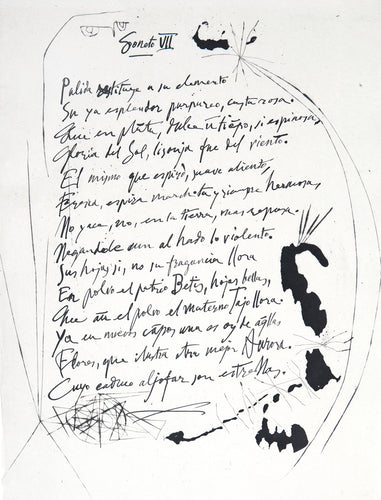 Soneto VII
Palida restituye a su elemento
Su ya esplendor purpureo, casta rosa.
Que en planta, dulce un tiempo, si espinosa,
Gloria del Sol, lisonja fue del viento.
El mismo que espiró, suave aliento,
Fresca, espira marchita y siempre hermosa,
No yace, no, en la tierra, mas reposa.
Negandole aun al hado lo violento.
Sus hojas si, no su fragancia llora
En polvo el patrio Betis, hojas bellas,
Que aun el polvo el materno Tajo llora.
Ya en nuevos campos una es oy de aqllas
Flores, que ilustra otra mejor Aurora.
Cuyo caduco aljofar son estrellas.